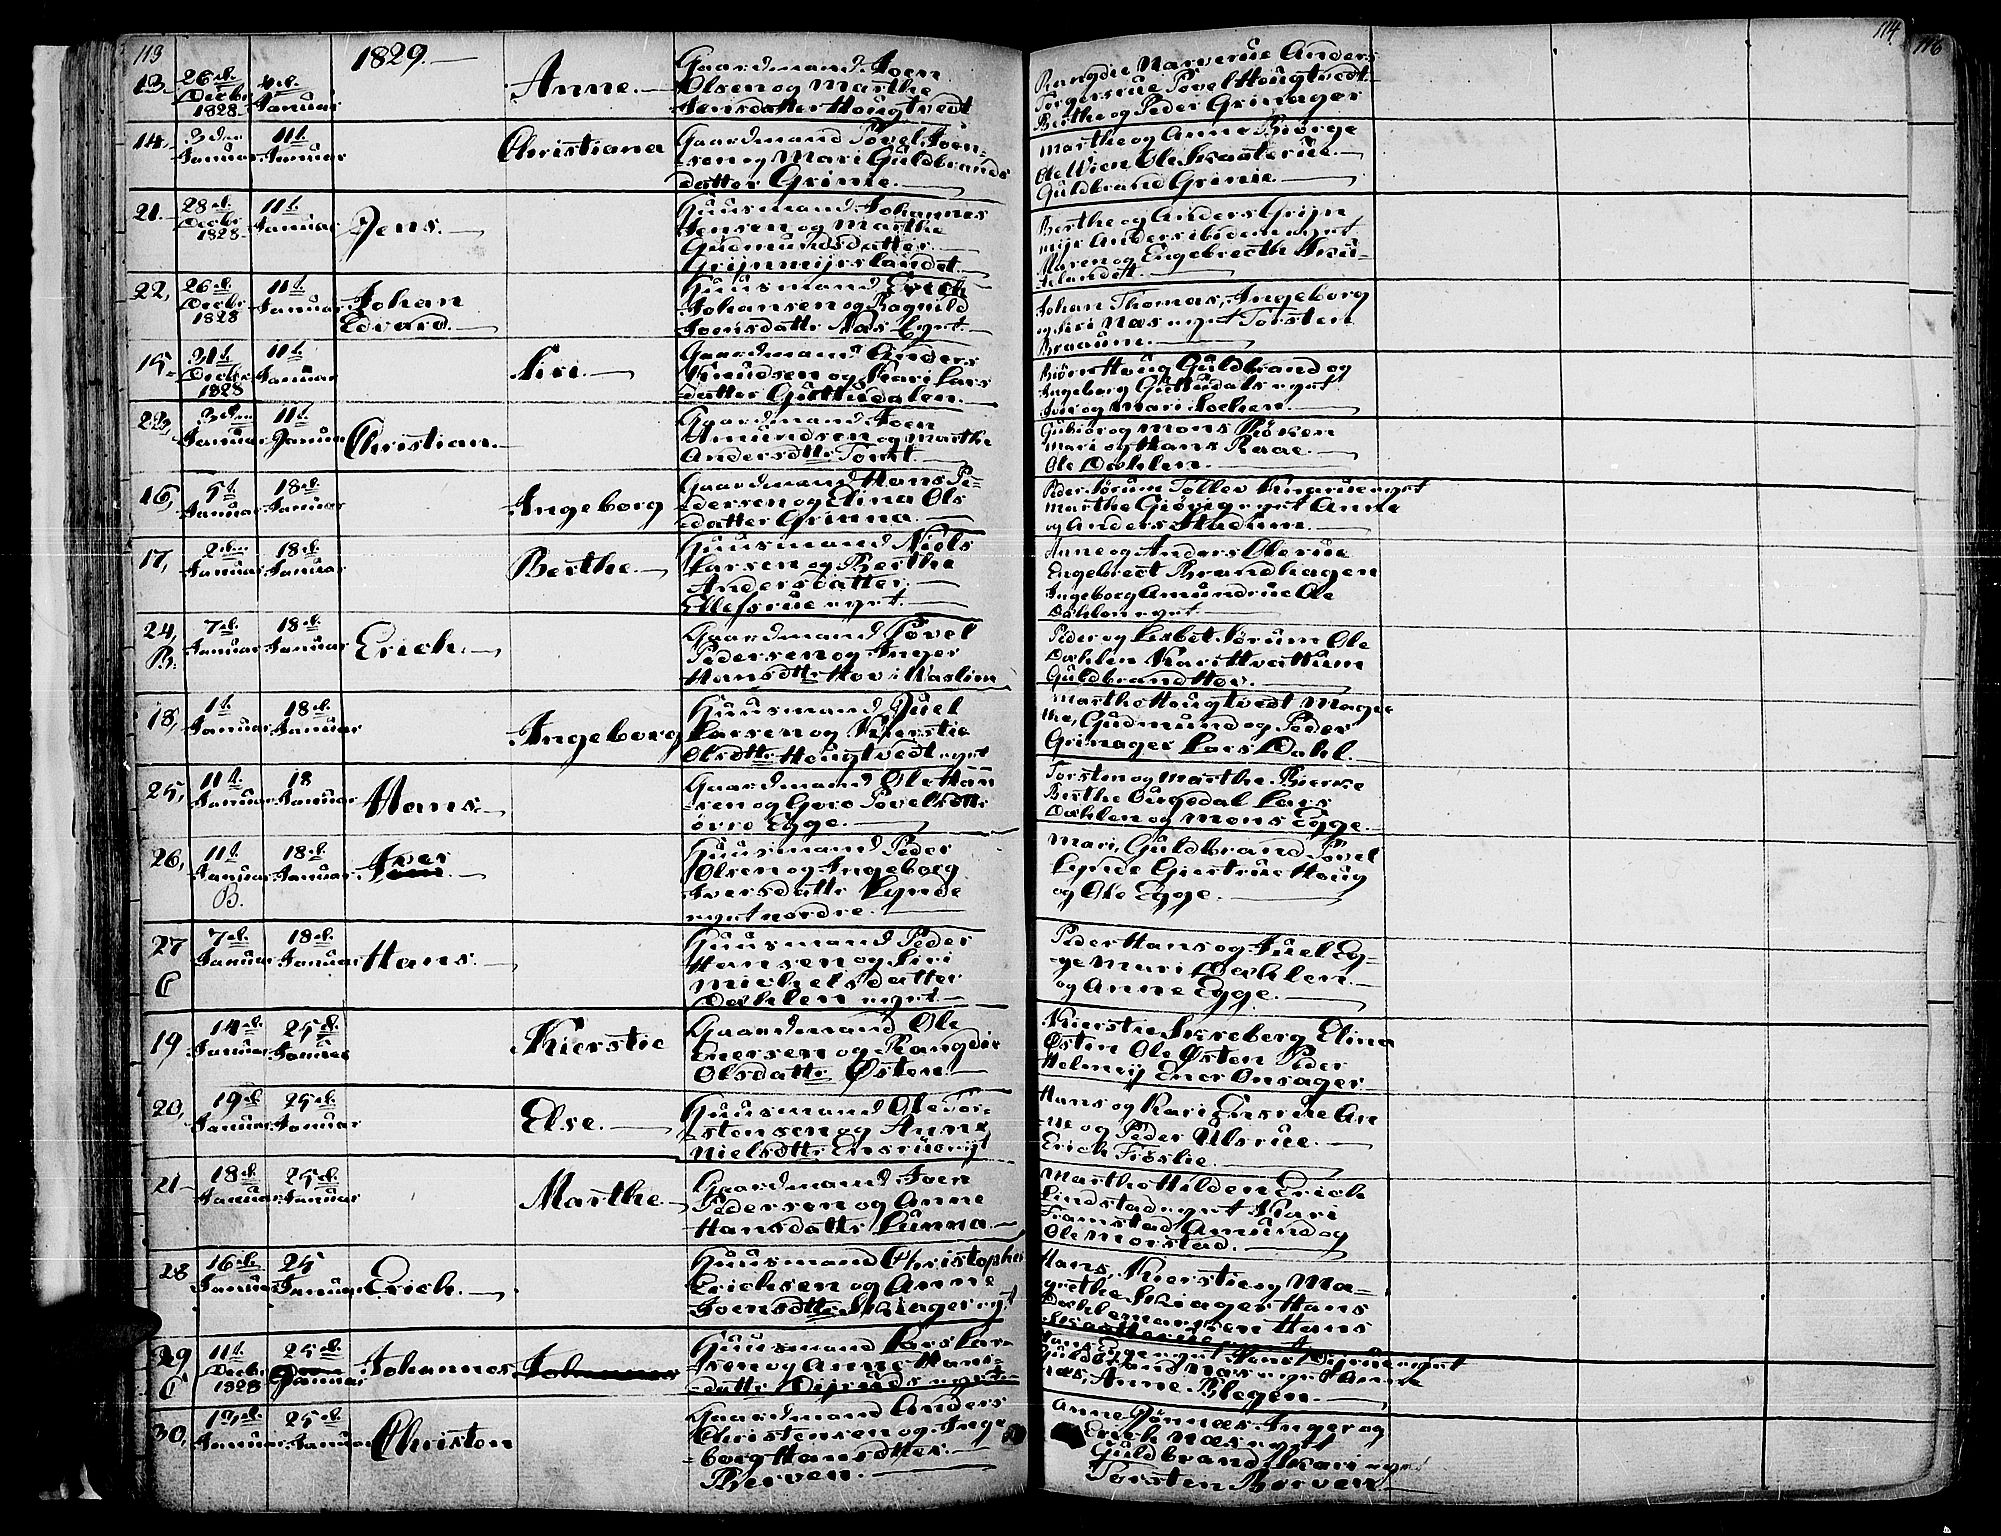 113
1829.
114
116
13. 26d. Decbr. 1828 4d. Januar Anne.
Gaardmand Joen
Olsen og Marthe
Jensdatter Hougtvedt
Rangdie Narverue Anders
Torgersrue Povel Hougtvedt
Berthe og Peder Grinager
14. 3die Januar 11t. Januar Christiana
Gaardmand Povel Joen-
sen og Mari Guldbrands
datter Grinie.
Marthe og Anne Biørge
Ole Vien Ole Skaaterue.
Guldbrand Grinie.
21. 28d. Decbr. 1828 11t. Januar Jens.
Huusmand Johannes
Jensen og Marthe
Gudmundsdatter
Grijnmijrslandet.
Berthe og Anders Grijn
mijr Anders ibidem eyet
Maren og Engebrecth
22, 26d. Decbr 1828 11t. Januar Johan
Edvard.
Huusmand Erich
Johansen og Ragnild
Joensdattr Næs Eyet.
Johan Thomas, Ingeborg
og Siri Næs eyet Torsten
Braaum.
15. 31t. Decbr. 1828 11t. Januar Siri.
Gaardmand Anders
Knudsen og Kari Lars
datter Guttudalen.
Biørn Houg Guldbrand og
Ingeborg Guttudals eyet
Iver og Mari Lochen.
23, 3die Januar 11t. Januar Christian.
Gaardmand Joen
Amundsen og Marthe
Andersdttr Torst.
Gubiør og Mons Røken
Mari og Hans Raae
Ole Dæhlen.
16, 5t Januar 18d. Januar Ingeborg
Gaardmand Hans Pe-
dersen og Elina Ols
datter Grinna.
Peder Sørum Tollev Knarue eyet
Marthe Giøvig eyet Anne
og Anders Stadum.
17, 2den Januar 18d. Januar Berthe.
Huusmand Niels
Larsen og Berthe
Andersdatter
Ellefsrue eyet.
Anne og Anders Olerue
Engebrect Brandhagen
Ingeborg Amundrue Ole
Dæhlen eyet.
24, B. 7d. Januar 18d. Januar Erich.
Gaardmand Povel
Pedersen og Inger
Hansdttr Hov i Vaslien
Peder og Lisbet Sørum Ole
Dæhlen Kari Hvattum
Guldbrand Hov.
18, 1t Januar 18d. Januar Ingeborg
Huusmand Juel
Larsen og Kierstie
Olsdttr Hougtvedt eyet
Marthe Hougtvedt Magre
the, Gudmund og Peder
Grinager Lars Dahl.
25, 11t. Januar 18 Januar Hans.
Gaardmand Ole Han
sen og Goro Povelsdttr
øvre Egge.
Torsten og Marthe Bierke
Berthe Ougedal Lars
Dæhlen og Mons Egge.
26, 11t. Januar B. 18d. Januar Iver
Huusmand Peder
Olsen og Ingeborg
Iversdattr Lynde
eyet nordre.
Mari, Guldbrand Povel
Lynde Giestrue Houg
og Ole Egge.
27 C 7d. Januar 18d. Januar Hans.
Huusmand Peder
Hansen og Siri
Michelsdatter
Dæhlen eyet.
Peder Hans og Juel Eg-
ge Mari Dæhlen.
og Anne Egge.
19 14d. Januar 25d. Januar Kierstie
Gaardmand Ole
Enersen og Rangdie
Olsdattr Østen.
Kierstie Skreberg Elina
Østen Ole Østen Peder
Helmeij Ener Onsager
20, 19d. Januar 25d. Januar Else.
Huusmand Ole Tor-
stensen og Anne
Nielsdttr Ensrue eyt
Hans og Kari Ensrue An
ne og Peder Ulsrue.
Erich Frøslie.
21 18d. Januar 25d. Januar Marthe.
Gaardmand Joen
Pedersen og Anne
Hansdattr Lunna.
Marthe Hilden Erich
Lindstad eyet Kari
Framstad Amund og
Ole Morstad.
28 16d. Januar 25 Januar Erich.
Huusmand Christopher
Erichsen og Anne
Joensdttr Skiager eyt
Hans, Kierstie og Ma-
grethe Skiager Hans
Dæhlemarken Hans
Skaatterue
29 C 11t Decbr. 1828 25d. Januar Johannes
Huusmand Lars Lar-
sen og Anne Hans-
dattr Dijruds eyet
Guldbrand Næs eyet Anne
næs, Anne Blegen.
30, 19d. Januar 25d. Januar Christen
Gaardmand Anders
Christensen og Inge
borg Hansdtter.
Berven.
Anne Hønnæs Inger og
Erich Næs eyet
Guldbrand Skari eyet
Torsten Berven